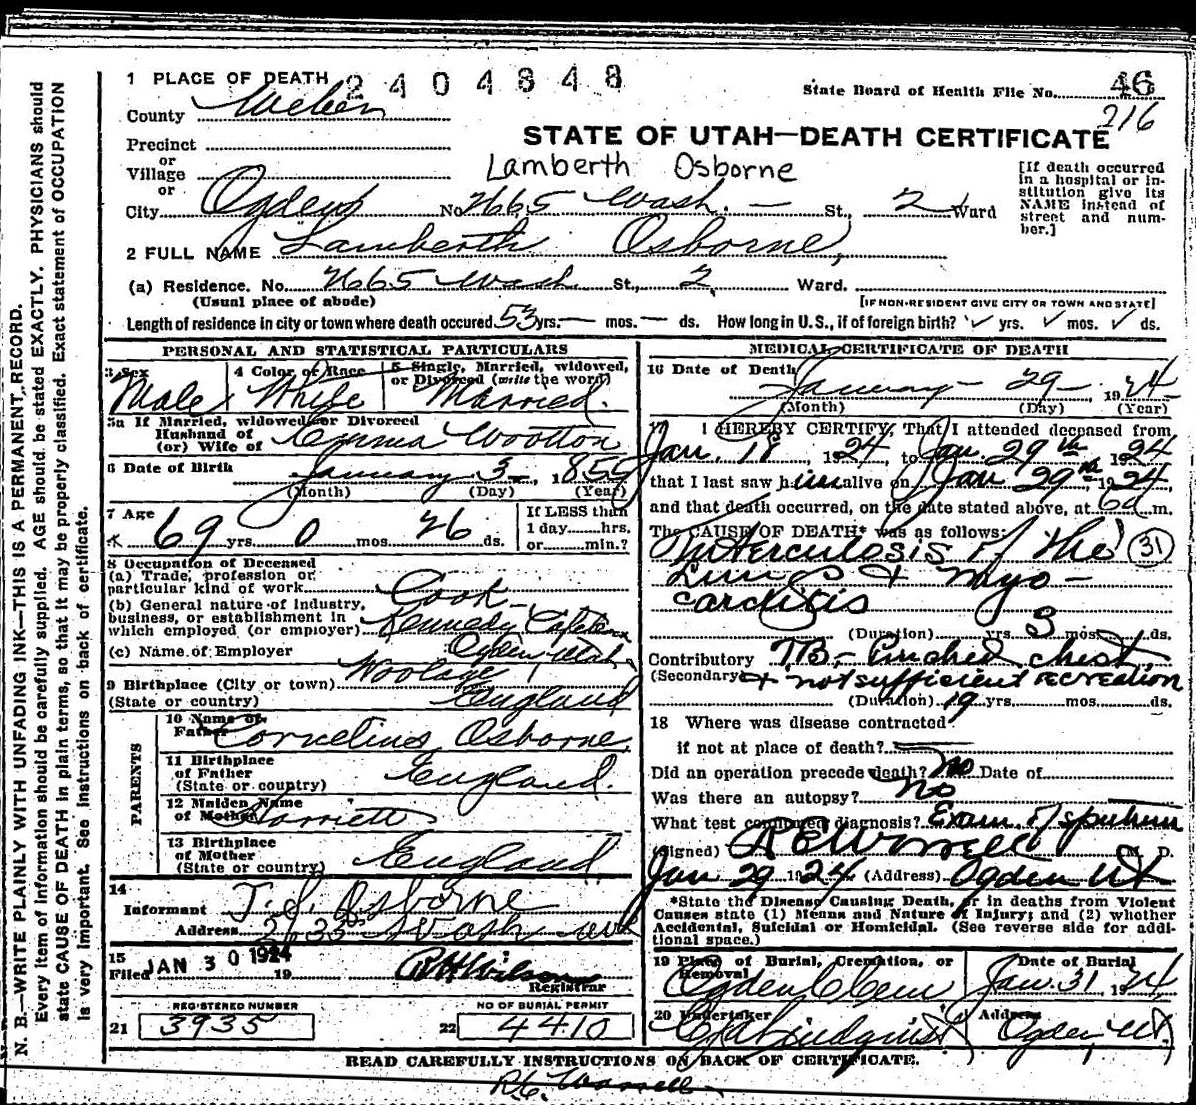 1 PLACE OF DEATH 2404848 State Board of Health File No. 46
County Weber 216
STATE OF UTAH—DEATH CERTIFICATE
Precinct
or
Village Lamberth Osborne
or
City Ogden No 2665 Wash. — St., 2 Ward
[If death occurred
in a hospital or in-
stitution give its
NAME instead of
street and num-
ber.]
2 FULL NAME Lamberth Osborne,
(a) Residence. No. 2665 Wash St., 2 Ward.
(Usual place of abode) [IF NON-RESIDENT GIVE CITY OR TOWN AND STATE]
Length of residence in city or town where death occured 53 yrs. — mos. — ds. How long in U.S., if of foreign birth? ✓ yrs. ✓ mos. ✓ ds.
PERSONAL AND STATISTICAL PARTICULARS
3 Sex 4 Color or Race 5 Single, Married, widowed,
or Divorced (write the word)
Male White Married.
5a If Married, widowed or Divorced
Husband of
(or) Wife of Emma Wootton
6 Date of Birth January 3, 1855
(Month) (Day) (Year)
7 Age 69 yrs. 0 mos. 26 ds.
If LESS than
1 day hrs.
or min.?
8 Occupation of Deceased
(a) Trade, profession or
particular kind of work Cook
(b) General nature of Industry,
business, or establishment in
which employed (or employer) Kennedy
(c) Name of Employer Ogden Utah
9 Birthplace (City or town) Woolage
(State or country) England
PARENTS
10 Name of
Father Cornelius Osborne
11 Birthplace
of Father
(State or country) England.
12 Maiden Name
of Mother Harriett
13 Birthplace
of Mother
(State or country) England
14
Informant T. J. Osborne
Address Wash ave
15
Filed JAN 30 1924 19 R H Wilson
Registrar
REGISTERED NUMBER NO OF BURIAL PERMIT
21 3935 22 4410
MEDICAL CERTIFICATE OF DEATH
16 Date of Death
January 29, 1924
(Month) (Day) (Year)
17 I HEREBY CERTIFY, That I attended deceased from
Jan. 18, 1924, to Jan. 29th 1924
that I last saw him alive on Jan 29th, 1924,
and that death occurred, on the date stated above, at 6a m.
The CAUSE OF DEATH* was as follows:
Tuberculosis of the 31
Lungs & Myo-
carditis
(Duration) yrs. 3 mos. ds.
Contributory T.B.- Pinched chest,
(Secondary) + not sufficient recreation
(Duration) 19 yrs. mos. ds.
18 Where was disease contracted
if not at place of death?
Did an operation precede death? No Date of
Was there an autopsy? No
What test confirmed diagnosis? Exam. of sputum
(Signed) R C Worrell M. D.
Jan 29 1924 (Address) Ogden Ut
*State the Disease Causing Death, or in deaths from Violent
Causes state (1) Means and Nature of Injury; and (2) whether
Accidental, Suicidal or Homicidal. (See reverse side for addi-
tional space.)
19 Place of Burial, Cremation, or
Removal Date of Burial
Ogden Cem Jan. 31, 1924
20 Undertaker Address
Lindquist Ogden, Ut
READ CAREFULLY INSTRUCTIONS ON BACK OF CERTIFICATE.
R.C. Worrell
N. B.—WRITE PLAINLY WITH UNFADING INK—THIS IS A PERMANENT RECORD.
Every item of information should be carefully supplied. AGE should be stated EXACTLY. PHYSICIANS should
state CAUSE OF DEATH in plain terms, so that it may be properly classified. Exact statement of OCCUPATION
is very important. See instructions on back of certificate.